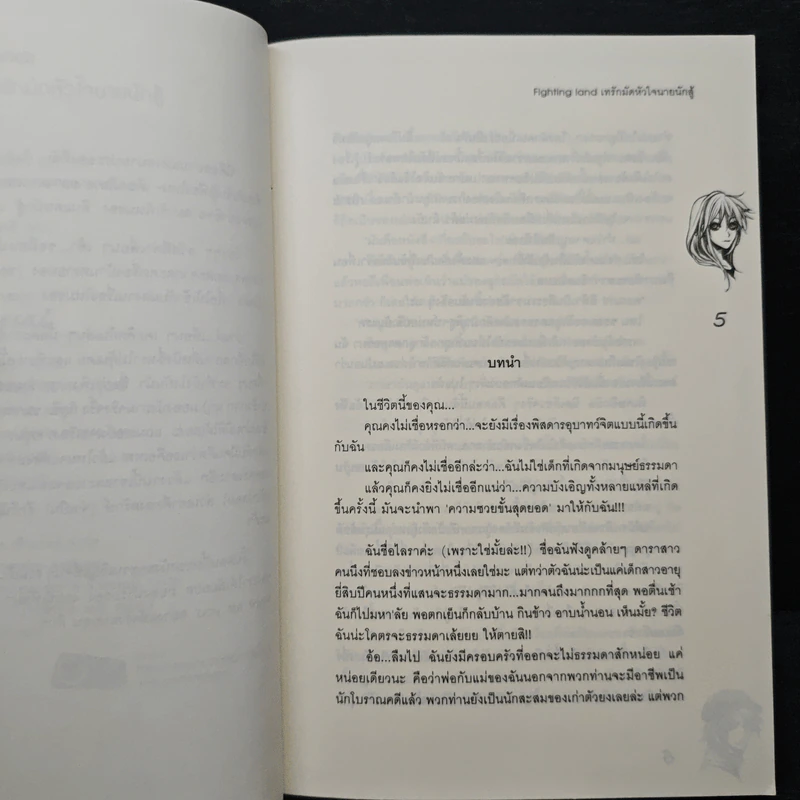 Fighting land เทรักมัดหัวใจนายนักสู้
5
บทนำ
ในชีวิตนี้ของคุณ...
คุณคงไม่เชื่อหรอกว่า...จะยังมีเรื่องพิสดารอุบาทว์จิตแบบนี้เกิดขึ้น
กับฉัน
และคุณก็คงไม่เชื่ออีกล่ะว่า...ฉันไม่ใช่เด็กที่เกิดจากมนุษย์ธรรมดา
แล้วคุณก็คงยิ่งไม่เชื่ออีกแน่ว่า...ความบังเอิญทั้งหลายแหล่ที่เกิด
ขึ้นครั้งนี้ มันจะนำพา ‘ความซวยขั้นสุดยอด’ มาให้กับฉัน!!!
ฉันชื่อไลราค่ะ (เพราะใช่มั้ยล่ะ!!) ชื่อฉันฟังดูคล้ายๆ ดาราสาว
คนนึงที่ชอบลงข่าวหน้าหนึ่งเลยใช่มะ แต่ทว่าตัวฉันน่ะเป็นแค่เด็กสาวอายุ
ยี่สิบปีคนหนึ่งที่แสนจะธรรมดามาก...มากจนถึงมากกกที่สุด พอตื่นเช้า
ฉันก็ไปมหา'ลัย พอตกเย็นก็กลับบ้าน กินข้าว อาบน้ำนอน เห็นมั้ย? ชีวิต
ฉันน่ะโคตรจะธรรมดาเล้ยยย ให้ตายสิ!!
อ้อ...ลืมไป ฉันยังมีครอบครัวที่ออกจะไม่ธรรมดาสักหน่อย แค่
หน่อยเดียวนะ คือว่าพ่อกับแม่ของฉันนอกจากพวกท่านจะมีอาชีพเป็น
นักโบราณคดีแล้ว พวกท่านยังเป็นนักสะสมของเก่าตัวยงเลยล่ะ แต่พวก